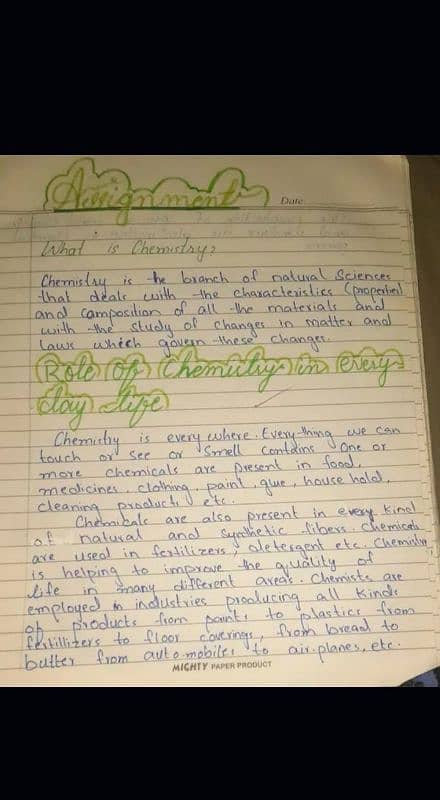 Assignment
Date:
What is Chemistry?
Chemistry is the branch of natural Sciences
that deals with the characteristics (properties)
and composition of all the materials and
with the study of changes in matter and
laws which govern these changes.
Role of Chemistry in every
day life
Chemistry is everywhere. Everything we can
touch or see or Smell contains One or
more chemicals are present in food,
medicines, clothing, paint, glue, house hold,
cleaning products etc.
Chemicals are also present in every kind
of natural and Synthetic fibers. Chemicals
are used in fertilizers, detergent etc. Chemistry
is helping to improve the quality of
life in many different areas. Chemists are
employed in industries producing all kinds
of products from paints to plastics from
fertillizers to floor coverings, from bread to
butter from automobiles to air-planes, etc.
MIGHTY PAPER PRODUCT